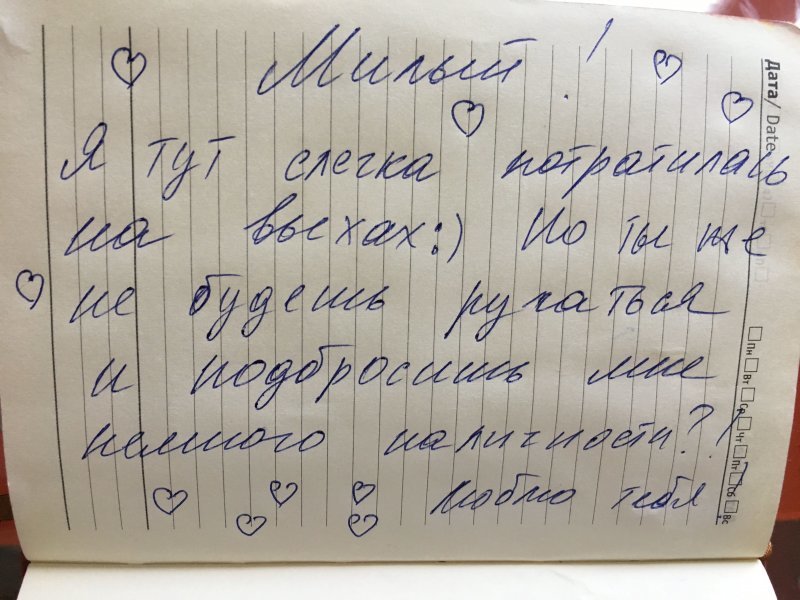 Милый!
Я тут слегка потратилась
на выхах:) Но ты же
не будешь ругаться
и подбросишь мне
немного наличности?!
Люблю тебя
Дата/ Date
Пн Вт Ср Чт Пт Сб Вс